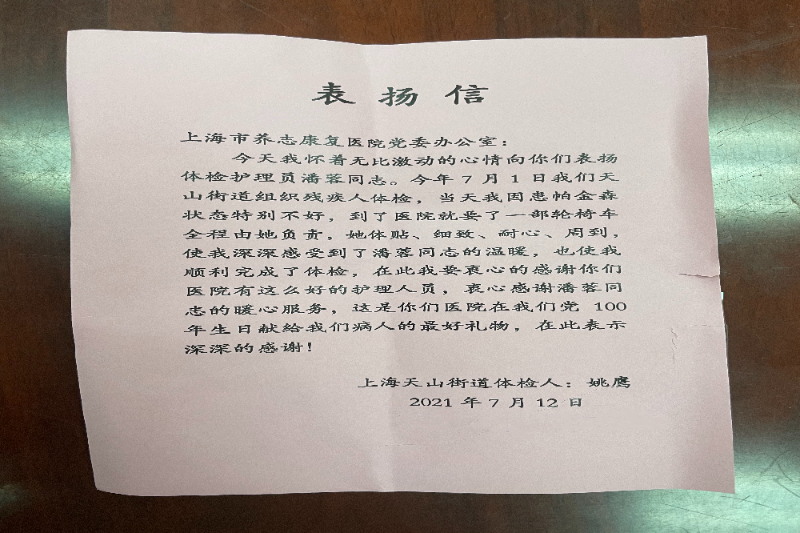 表扬信
上海市养志康复医院党委办公室：
今天我怀着无比激动的心情向你们表扬
体检护理员潘蓉同志。今年7月1日我们天
山街道组织残疾人体检，当天我因患帕金森
状态特别不好，到了医院就要了一部轮椅车
全程由她负责，她体贴、细致、耐心、周到，
使我深深感受到了潘蓉同志的温暖，也使我
顺利完成了体检，在此我要衷心的感谢你们
医院有这么好的护理人员，衷心感谢潘蓉同
志的暖心服务，这是你们医院在我们党 100
年生日献给我们病人的最好礼物，在此表示
深深的感谢！
上海天山街道体检人：姚鹰
2021年7月12日